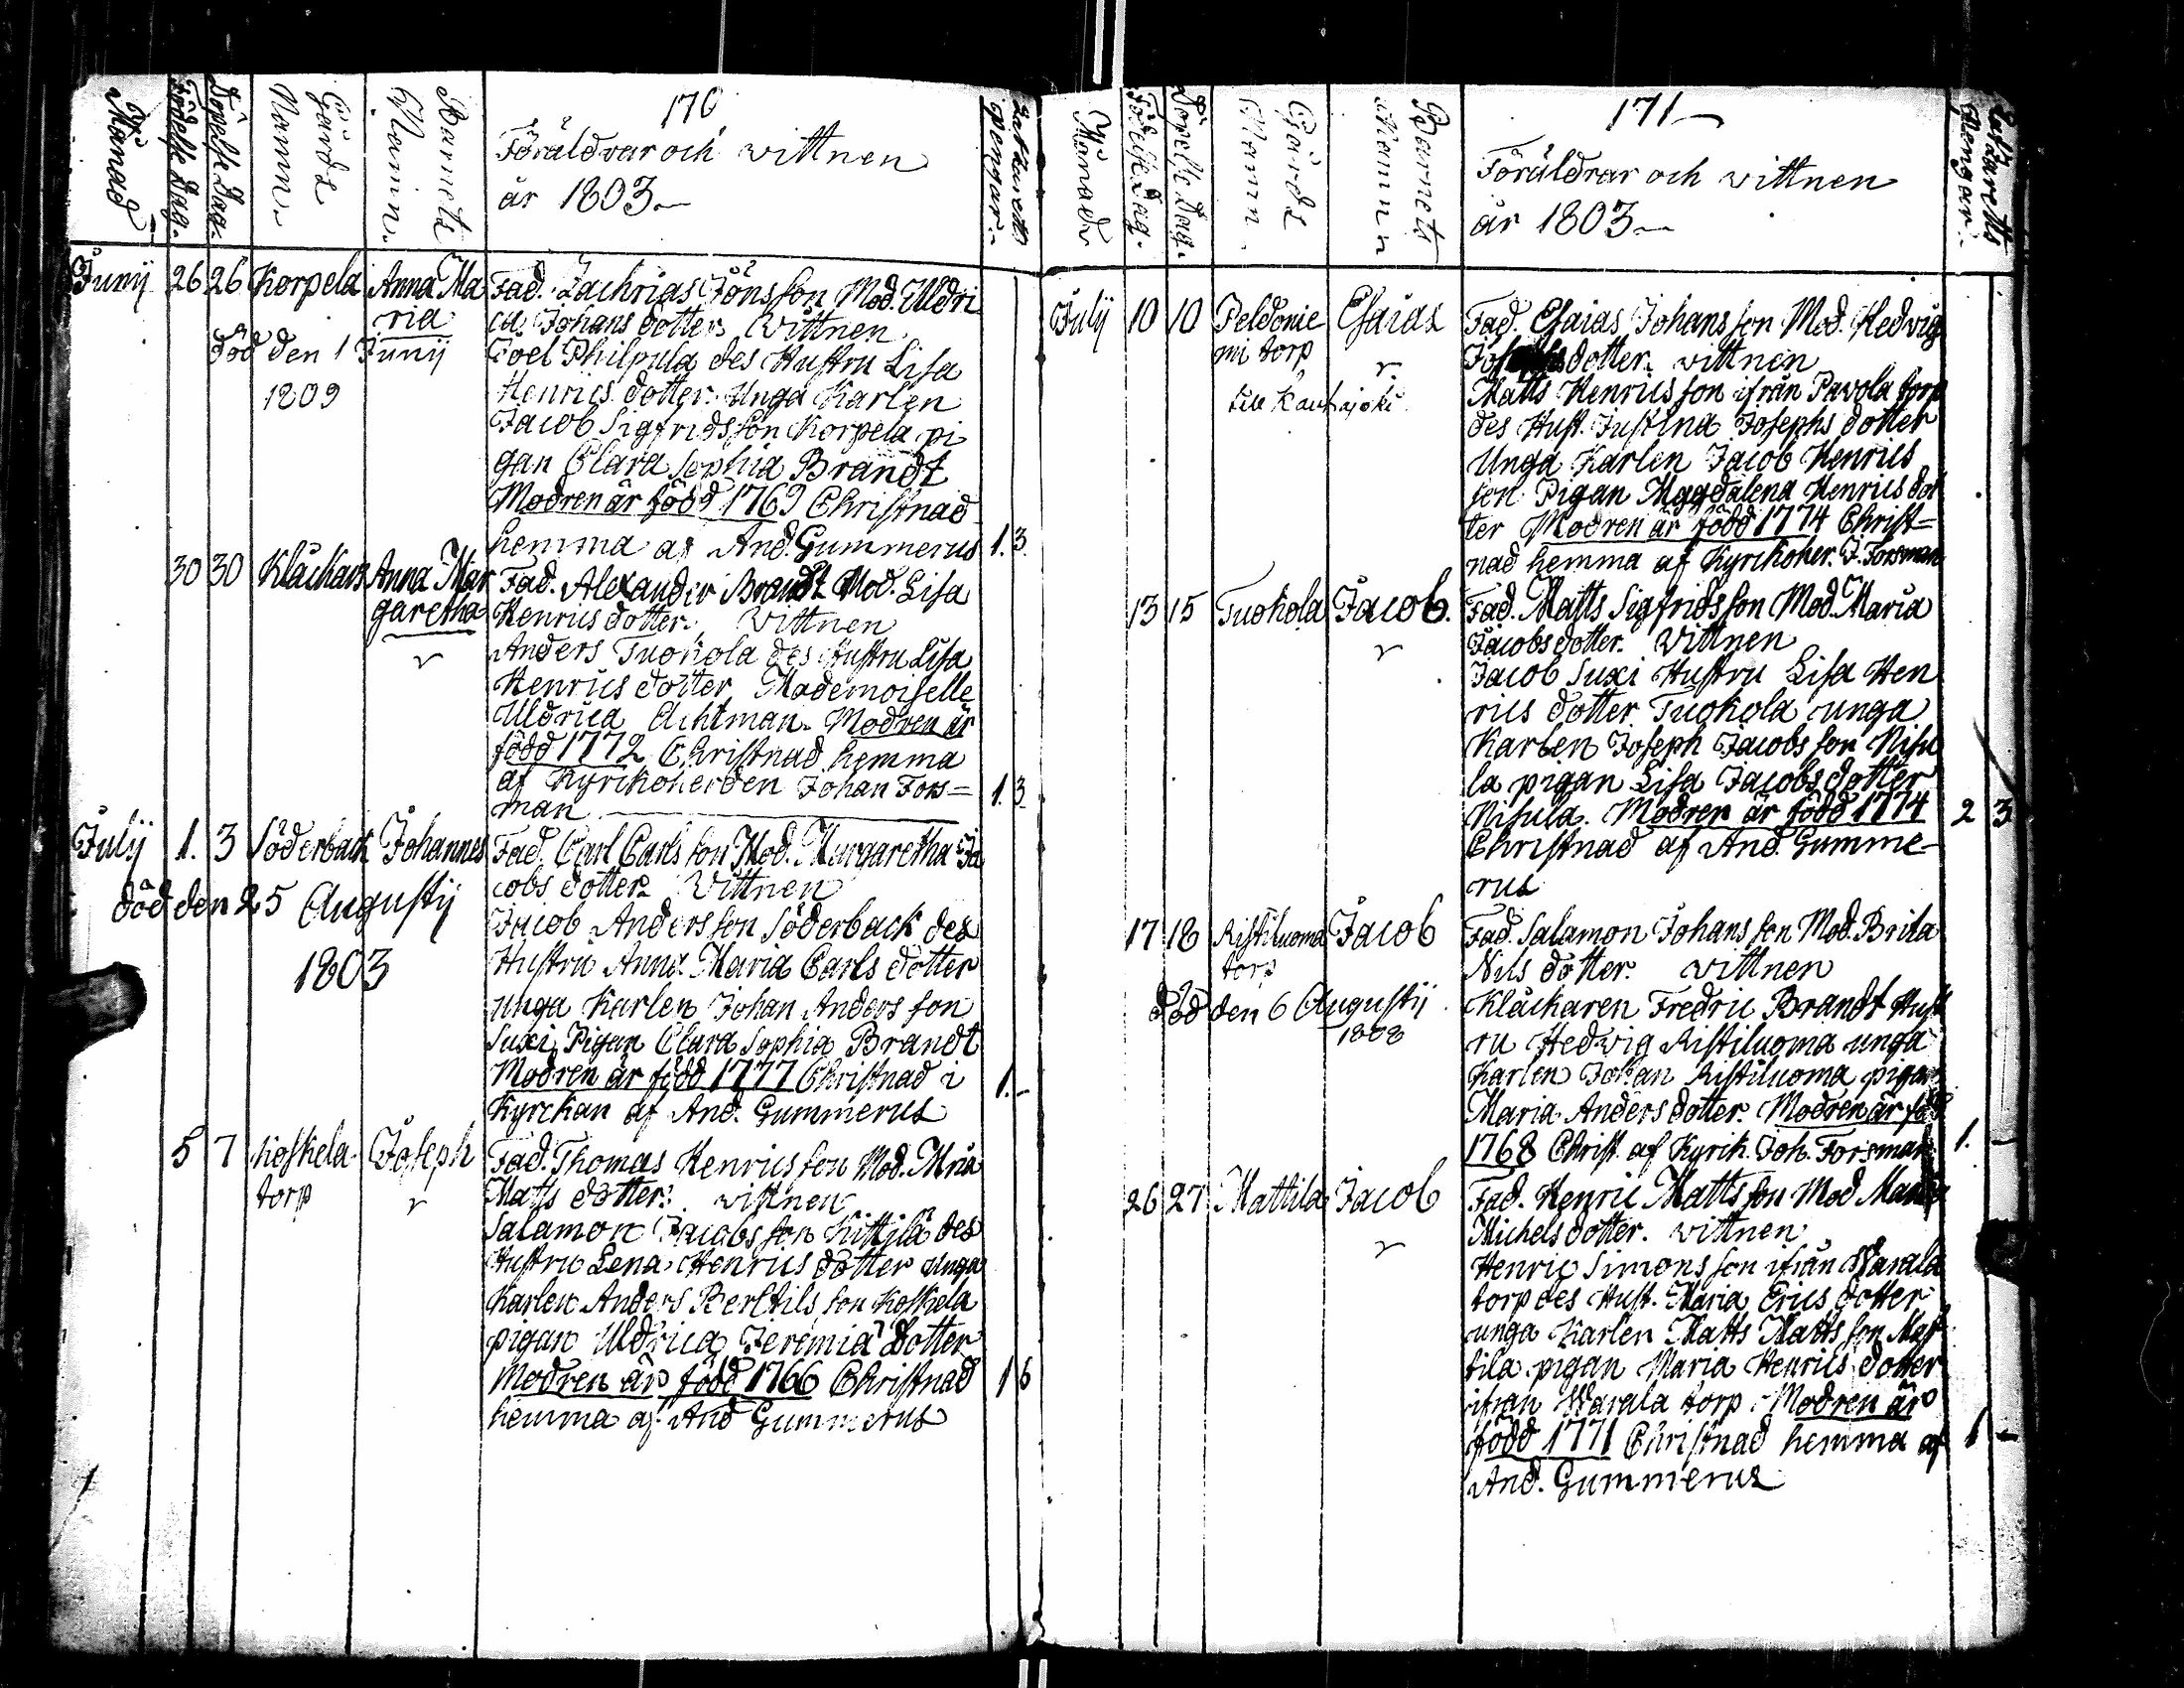 170
Månad
Födelse Dag.
Döpelse Dag.
Gårds Namn.
Barnets Namn.
Föräldrar och wittnen
år 1803.
Lazaretts pengar.
Junij 26 26 Korpela Anna Ma
ria
död den 1 Junij
1809
Fad. Zachrias Jöns son Mod. Uldri
ca Johans dotter. Wittnen
Joel Philpula des Hustru Lisa
Henrics dotter. Unga Karlen
Jacob Sigfrids son Korpela pi
gan Clara Sophia Brandt
Modren är född 1769 Christnad
hemma af And. Gummerus 1. 3.
30 30 Klåckars Anna Mar
garetha
Fad. Alexander Brandt Mod. Lisa
Henrics dotter. Wittnen
Anders Tuokola des Hustru Lisa
Henrics dotter Mademoiselle
Uldrica Achtman. Modren är
född 1772 Christnad hemma
af Kyrckoherden Johan Fors=
man 1. 3
Julij 1. 3 Söderback Johannes
död den 25 Augustij
1803
Fad. Carl Carls son Mod. Margaretha Ja
cobs dotter. Wittnen
Jacob Anders son Söderback des
Hustru Anna Maria Carls dotter
unga Karlen Johan Anders son
Suxi, Pigan Clara Sophia Brandt
Modren är född 1777 Christnad i
Kyrckan af And. Gummerus 1. -
5 7 Koskela Joseph
torp
Fad. Thomas Henrics son Mod. Mria
Matts dotter. wittnen
Salamon Jacobs son Kittilä des
Hustru Lena Henrics dotter unga
Karlen Anders Berltils son Koskela
pigan Uldrica Jeremia dotter
Modren är född 1766 Christnad 1 6
hemma af And Gummerus
171
Månad
Födelse Dag.
Döpelse Dag.
Gårds Namn.
Barnets Namn
Föräldrar och wittnen
år 1803
Lazaretts Pengar.
Julij 10 10 Peldonie Esaias
mi torp
till Kauhajoki
Fad. Esaias Johans son Mod. Hedvig
dotter. wittnen
Matts Henrics son ifrån Pavola torp
des Hust. Justina Josephs dotter
Unga Karlen Jacob Henrics
son Pigan Magdalena Henrics dot
ter Modren är född 1774 Christ=
nad hemma af Kyrckoher. J. Forsman
13 15 Tuokola Jacob.
Fad. Matts Sigfrids son Mod. Maria
Jacobs dotter. Wittnen
Jacob Suxi Hustru Lisa Hen
rics dotter Tuokola unga
Karlen Joseph Jacobs son Nisu
la pigan Lisa Jacobs dotter
Nisula. Modren är född 1774 2 3
Christnad af And. Gumme-
rus
17 18 Ristiluoma Jacob
torp
död den 6 Augustij
1808
Fad. Salamon Johans son Mod. Brita
Nils dotter. wittnen
Klåckaren Fredric Brandt Hust
ru Hedvig Ristiluoma unga
Karlen Johan Ristiluoma pigan
Maria Anders dotter. Modren är född
1768 Christ. af Kyrck. Joh. Forsman 1. -
26 27 Mattila Jacob
Fad. Henric Matts son Mod Maria
Michels dotter. wittnen
Henric Simons son ifrån Warala
torp des Hust. Maria Erics dotter
unga Karlen Matts Matts son Mat
tila pigan Maria Henrics dotter
ifrån Warala torp. Modren är
född 1771 Christnad hemma af 1 -
And. Gummerus